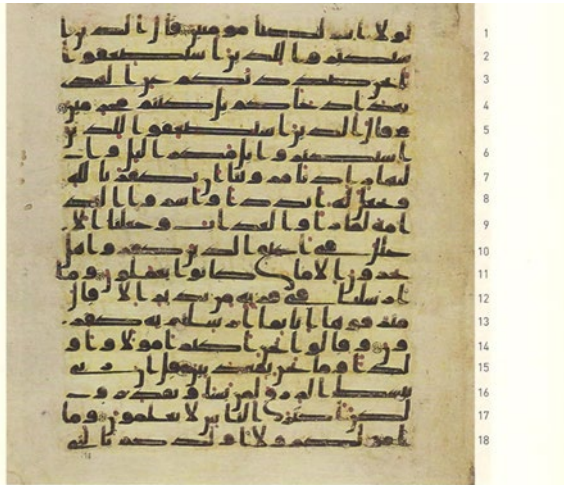 1 لولا انتم لكنا مومنين قال الذين ا
2 ستكبروا للذين استضعفوا
3 انحن صددنكم عن الهدى
4 بعد اذ جاكم بل كنتم مجرمين
5 وقال الذين استضعفوا للذين
6 استكبروا بل مكر اليل وا
7 لنهار اذ تامروننا ان نكفر بالله
8 ونجعل له اندادا واسروا الند
9 امة لما راوا العذاب وجعلنا الا
10 غلل في اعنق الذين كفروا هل
11 يجزون الا ما كانوا يعملون وما
12 ارسلنا في قرية من نذير الا قال
13 مترفوها انا بما ارسلتم به كفر
14 ون وقالوا نحن اكثر امولا واو
15 لدا وما نحن بمعذبين قل ان ربي
16 يبسط الرزق لمن يشا ويقدر و
17 لكن اكثر الناس لا يعلمون وما
18 امولكم ولا اولدكم بالتي